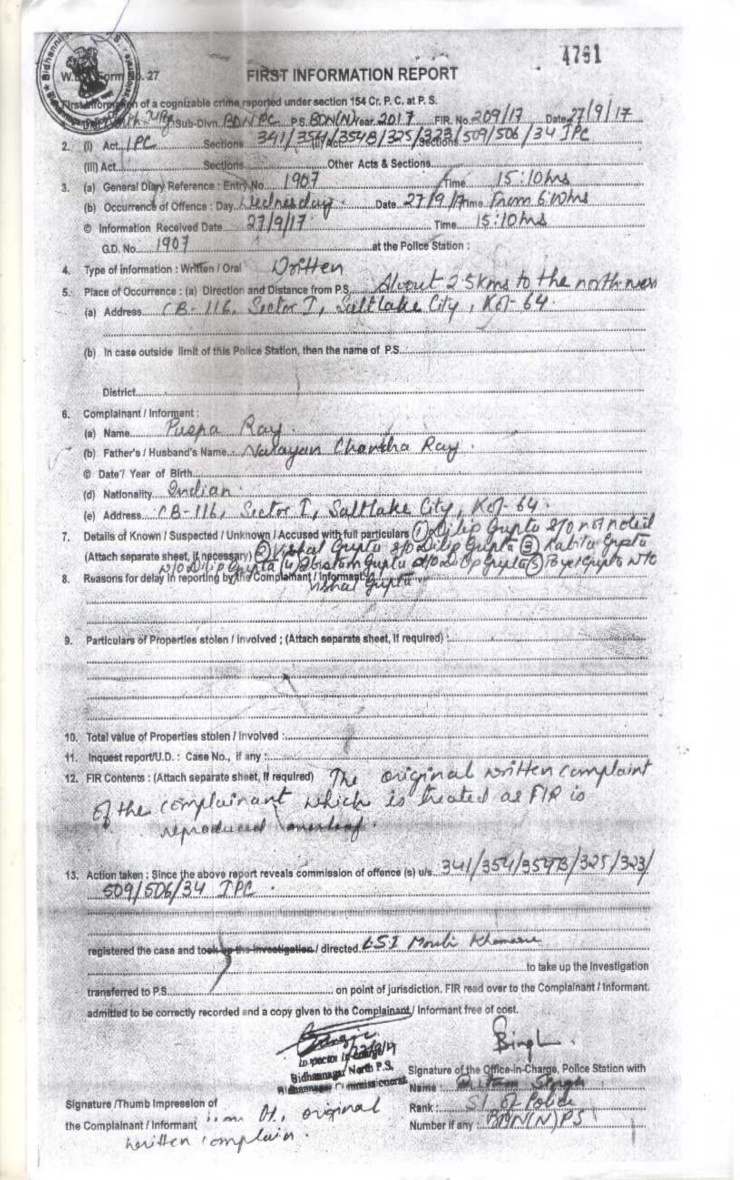 4761
W.B. Form No. 27
FIRST INFORMATION REPORT
First Information of a cognizable crime reported under section 154 Cr. P. C. at P. S.
Sub-Divn. BDN PC P.S. BDN(N) Year 2017 FIR. No. 209/17 Date 27/9/17
2. (i) Act IPC Sections 341/354/354B/325/323/509/506/34 IPC
(iii) Act Sections Other Acts & Sections
3. (a) General Diary Reference : Entry No. 1907 Time 15:10 hrs
(b) Occurrence of Offence : Day Wednesday. Date 27/9/17 Time From
© Information Received Date 27/9/17. Time 15:10 hrs
G.D. No. 1907 at the Police Station :
4. Type of information : Written / Oral Written
5. Place of Occurrence : (a) Direction and Distance from P.S. About 2.5kms to the north
(a) Address CB-116, Sector I, Saltlake City, Kol-64.
(b) In case outside limit of this Police Station, then the name of P.S.
District
6. Complainant / Informant :
(a) Name Puspa Ray.
(b) Father's / Husband's Name Narayan Chandra Ray.
© Date / Year of Birth
(d) Nationality Indian.
(e) Address CB-116, Sector I, Saltlake City, Kol-64.
7. Details of Known / Suspected / Unknown / Accused with full particulars (1) Dilip Gupta S/O not noted
(Attach separate sheet, if necessary) (2) Vishal Gupta S/O Dilip Gupta (3) Kabita Gupta
W/O Dilip Gupta (4) Gupta D/O Dilip Gupta (5) Gupta W/O
8. Reasons for delay in reporting by the Complainant / Informant Vishal Gupta
9. Particulars of Properties stolen / involved ; (Attach separate sheet, if required) :
10. Total value of Properties stolen / involved :
11. Inquest report/U.D. : Case No., if any :
12. FIR Contents : (Attach separate sheet, if required) The original written complaint
of the complainant which is treated as FIR is
reproduced overleaf.
13. Action taken : Since the above report reveals commission of offence (s) u/s. 341/354/354B/325/323/
509/506/34 IPC.
registered the case and took up the investigation / directed LSI Mouli
to take up the Investigation
transferred to P.S. on point of jurisdiction. FIR read over to the Complainant / Informant.
admitted to be correctly recorded and a copy given to the Complainant / Informant free of cost.
Inspector in charge
Bidhannagar North P.S.
Bidhannagar Commissionerate
Signature of the Office-in-Charge, Police Station with
Name : Singh
Rank : SI of Police
Number if any : BDN(N)PS
Signature /Thumb Impression of
the Complainant / Informant original
written complain.